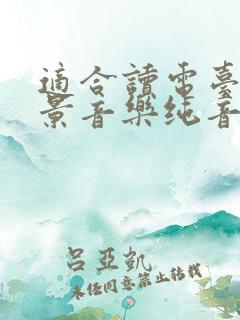 適合讀電臺
景音樂純音
呂亞凱
未經同意禁止轉載